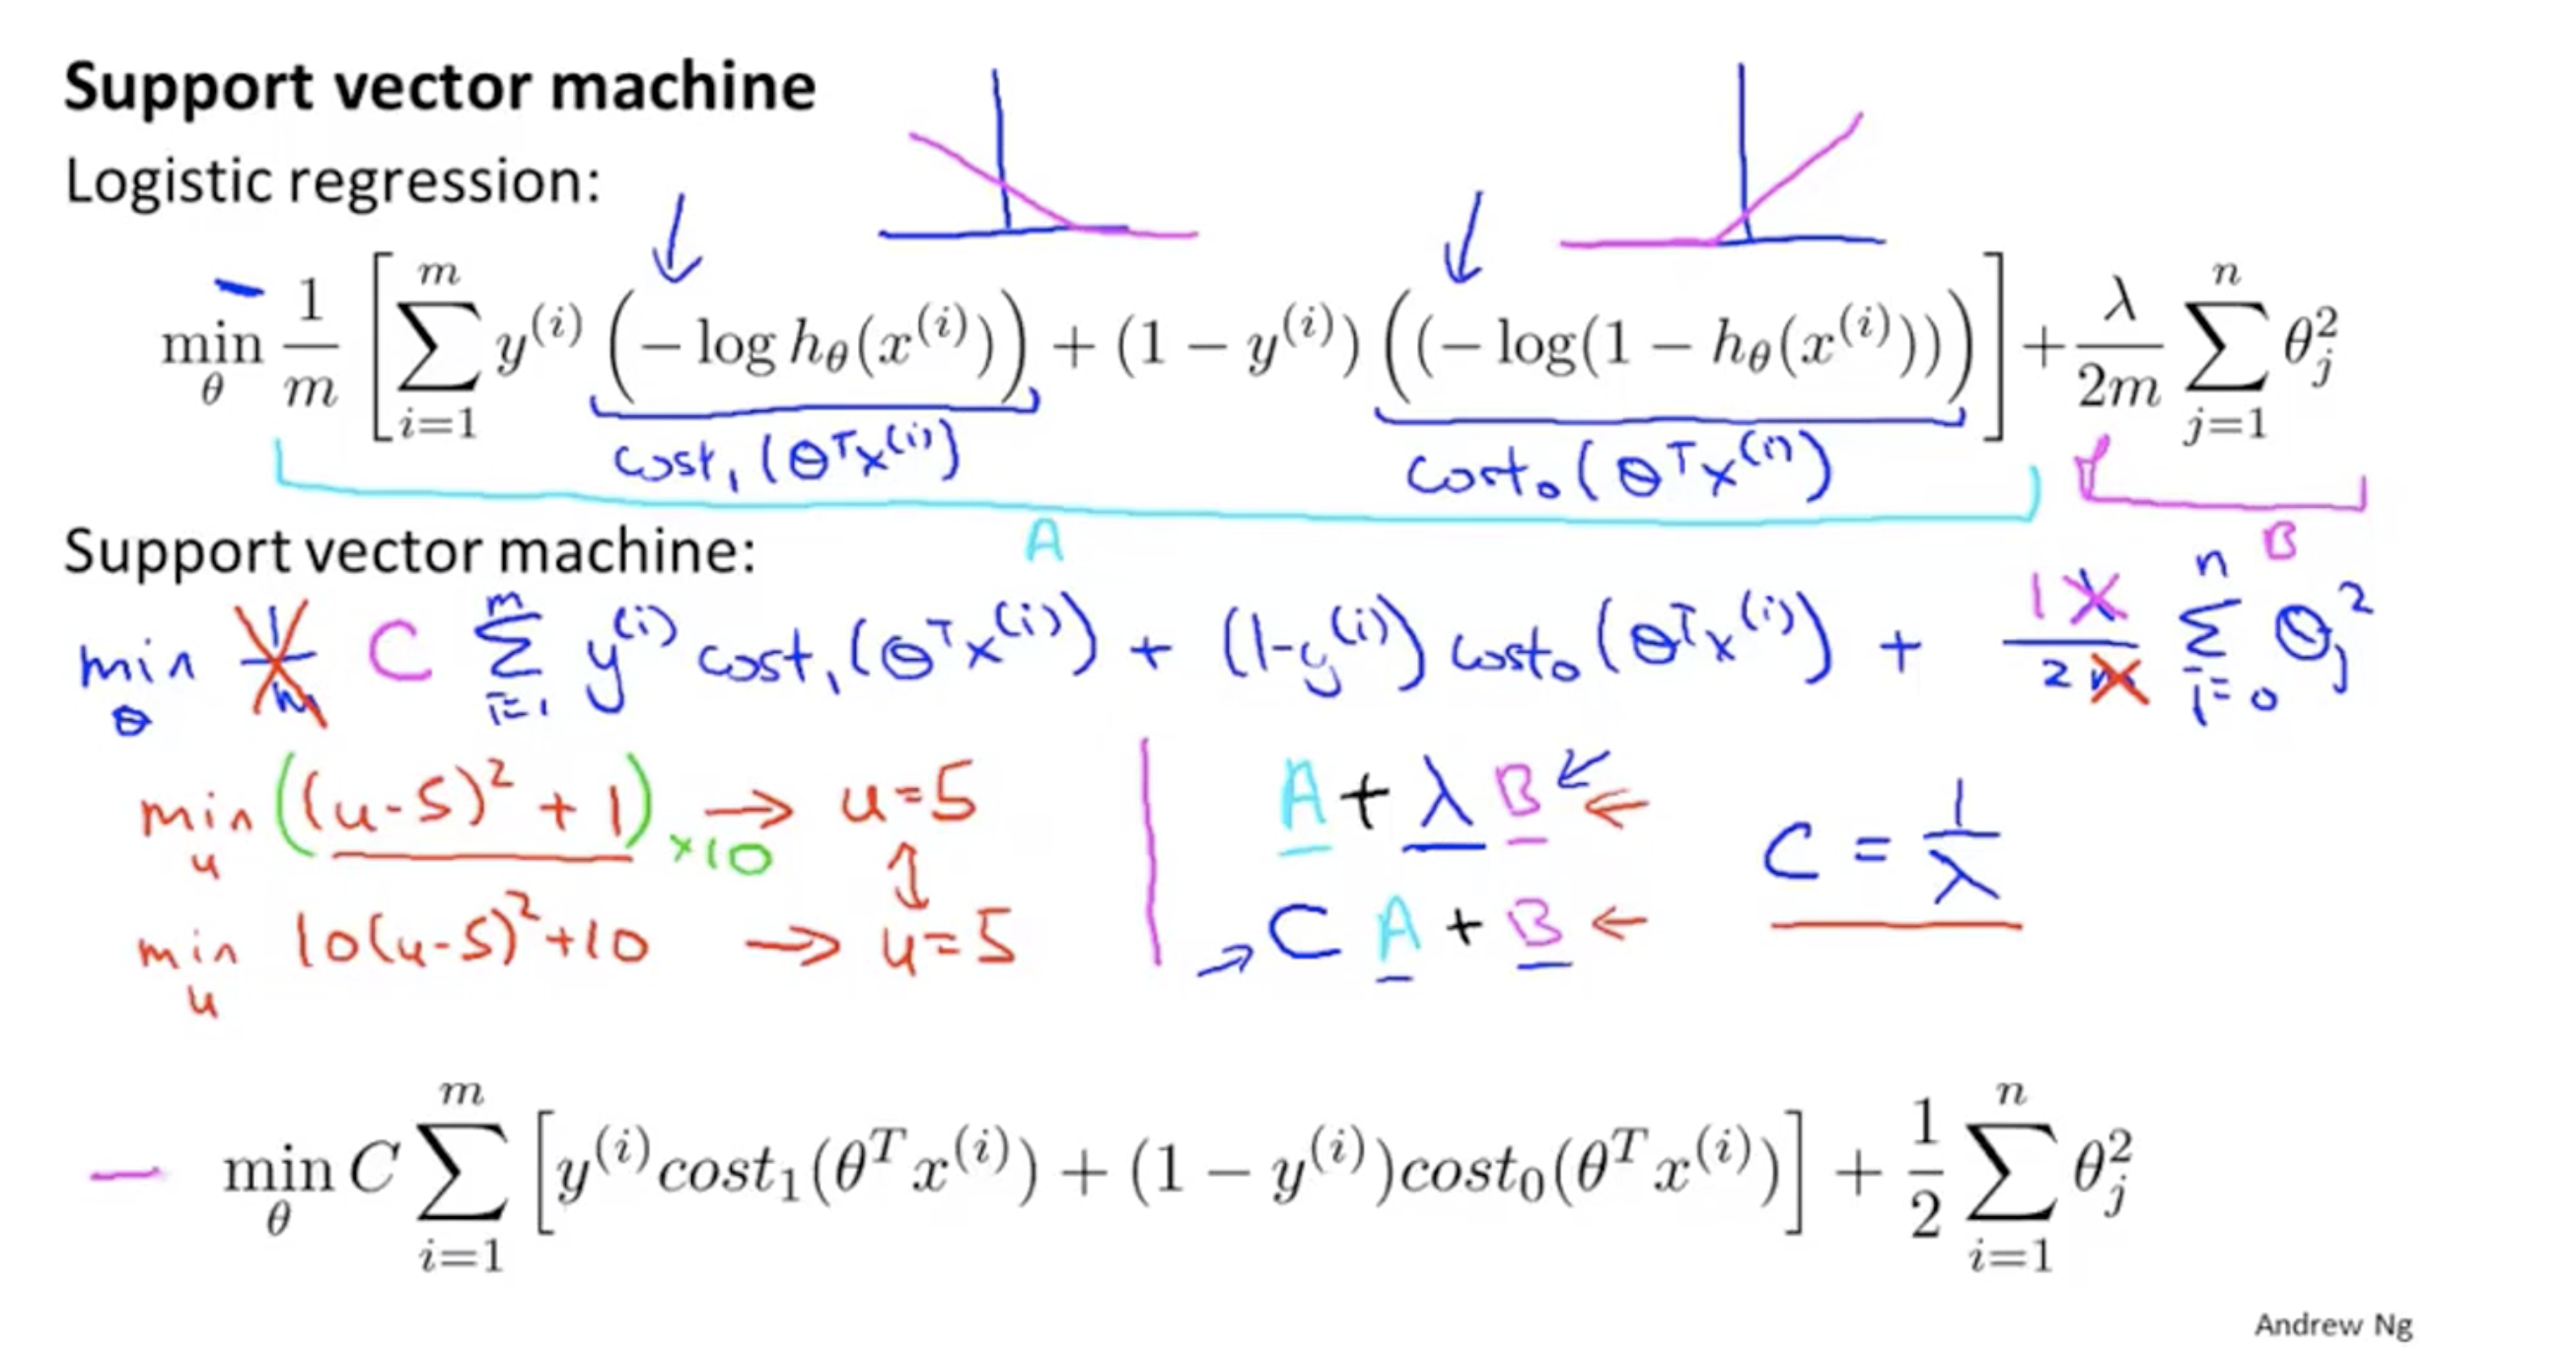 Support vector machine
Logistic regression:
min_θ 1/m [ ∑_{i=1}^{m} y^{(i)} (− log h_θ(x^{(i)})) + (1 − y^{(i)}) ((− log(1 − h_θ(x^{(i)}))) ] + λ/2m ∑_{j=1}^{n} θ_j^2
cost_1 (θ^T x^{(i)}) cost_0 (θ^T x^{(i)})
A B
Support vector machine:
min_θ 1/m C ∑_{i=1}^{m} y^{(i)} cost_1 (θ^T x^{(i)}) + (1-y^{(i)}) cost_0 (θ^T x^{(i)}) + 1 λ/2m ∑_{i=0}^{n} θ_j^2
min_u ((u-5)^2 + 1) ×10 → u=5 A + λ B ← C = 1/λ
min_u 10(u-5)^2+10 → u=5 → C A + B ←
min_θ C ∑_{i=1}^{m} [ y^{(i)} cost_1(θ^T x^{(i)}) + (1 − y^{(i)})cost_0(θ^T x^{(i)}) ] + 1/2 ∑_{i=1}^{n} θ_j^2
Andrew Ng